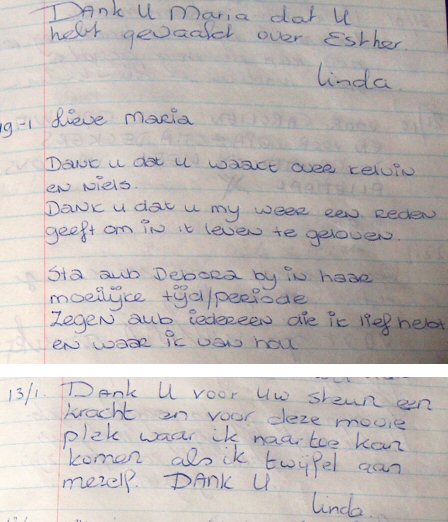 Dank U Maria dat U
hebt gewaakt over Esther.
Linda.
19-1 Lieve Maria
Dank u dat u waakt over Kelvin
en Niels.
Dank u dat u my weer een reden
geeft om in 't leven te geloven.
Sta aub Debora by in haar
moeilijke tijd/periode
Zegen aub iedereen die ik lief hebt
en waar ik van hou
13/1. Dank U voor uw steun en
kracht en voor deze mooie
plek waar ik naar toe kan
komen als ik twijfel aan
mezelf. DANK U
Linda.